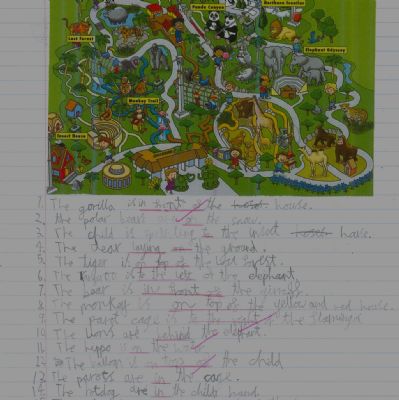 Panda Canyon
Northern Frontier
Lost Forest
Elephant Odyssey
Monkey Trail
Insect House
1. The gorilla is in front of the house.
2. the polar bears are on the snow.
3. The child is to the insect house.
4. The bear laying on the ground.
5. The tiger is on top of the Lost Forest.
6. The is to the left of the elephant.
7. The bear is in front of the
8. The monkey is one top of the yellow and red house.
9. The parrot cage is to the right of the
10. The Lions are behind the elephant.
11. The hypo is on the water
12. The is in front of the child
13. The parots are in the cage.
14. The hotdog are in the childs hand.